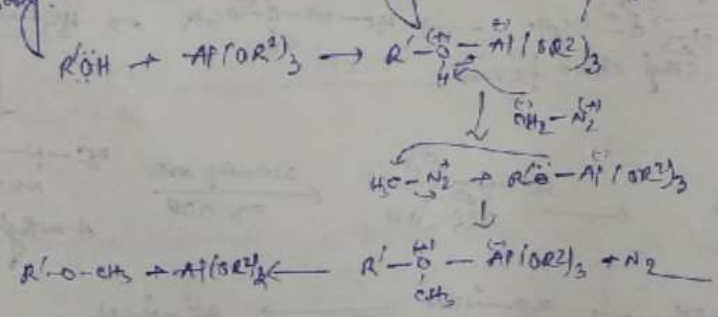 R'ÖH + Al(OR²)₃ → R'-O(+)-Al(-)(OR²)₃
H
(-)CH₂-N₂(+)
H₃C-N₂⁺ + R'Ö-Al(-)(OR²)₃
R'-O-CH₃ + Al(OR²)₃ ← R'-O(+)-Al(-)(OR²)₃ + N₂
CH₃